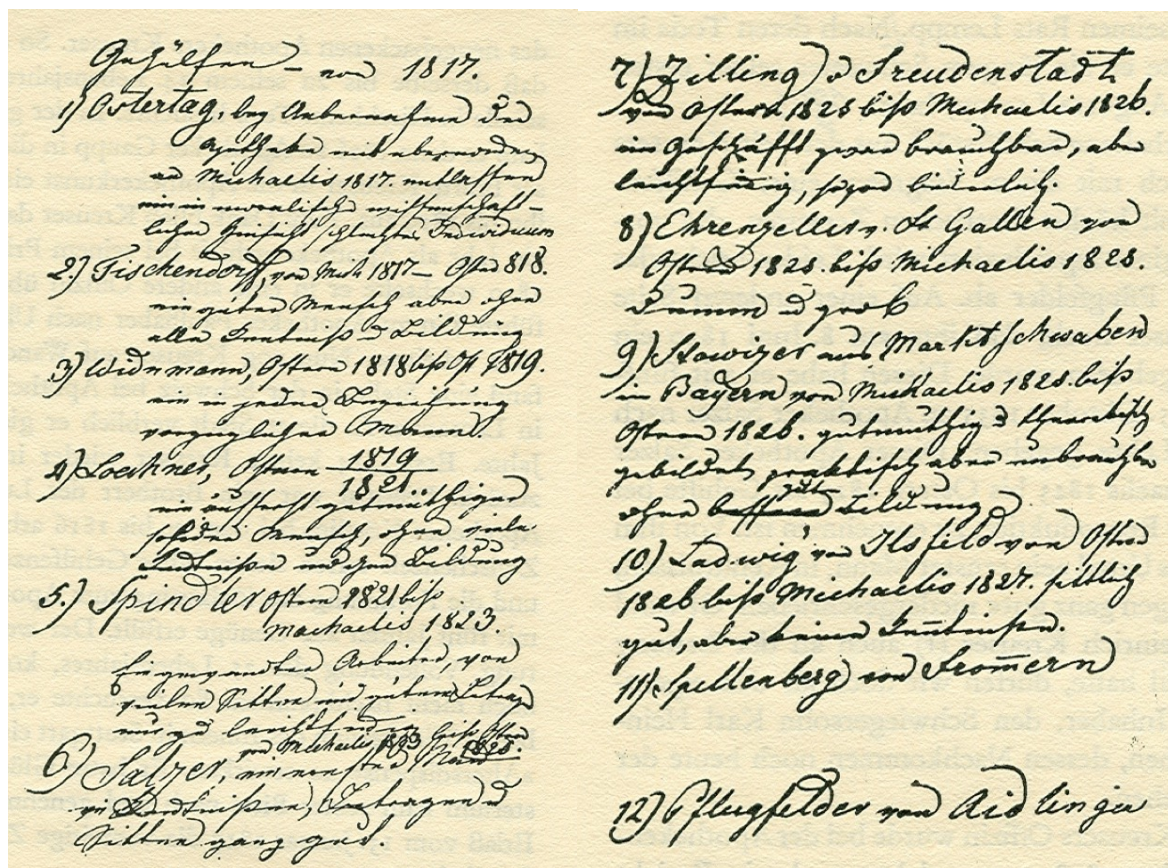 Gehülfen – von 1817.
1) Ostertag, bey Uebernahme der
Apotheke mit übernommen
an Michaelis 1817. entlassen
ein in moralisch wissenschaft-
licher Hinsicht schlechtes Individuum
2.) Tischendorf, von Mich 1817 – Ostern 818.
ein guter Mensch aber ohne
alle Kentniß u Bildung
3) Widnmann, Ostern 1818 biß Ost 1819.
ein in jeder Beziehung
vorzüglicher Mann.
4) Lochner, Ostern 1819
1821..
ein äusserst gutmüthiger
solider Mensch, ohne viele
Kentniße und ohne Bildung
5.) Spindler Ostern 1821 biß
Michaelis 1823.
Arbeiter, von
vielen Sitten und gutem Betrage
nur zu leicht
von Michaelis 1823 biß Ostern 1825.
6) Salzer, ein
in Kentnißen, Betragen u
Sitten ganz gut
7) Zilling v Freudenstadt
von Ostern 1825 biß Michaelis 1826.
im Geschäfft zwar brauchbar, aber
leichtsinnig, sogar liederlich.
8) Ehrenzeller v. St Gallen von
Ostern 1825. biß Michaelis 1825.
dumm u grob
9) Stowizer aus Markt Schwaben
in Bayern von Michaelis 1825. biß
Ostern 1826. gutmüthig u theoretisch
gebildet, praktisch aber unbrauchbar
ohne Bildung
10) Ludwig von Ilsfeld von Ostern
1826 biß Michaelis 1827. sittlich
gut, aber keine Kenntniße.
11) Spellenberg von Frommern
12) Pflugfelder von Aidlingen